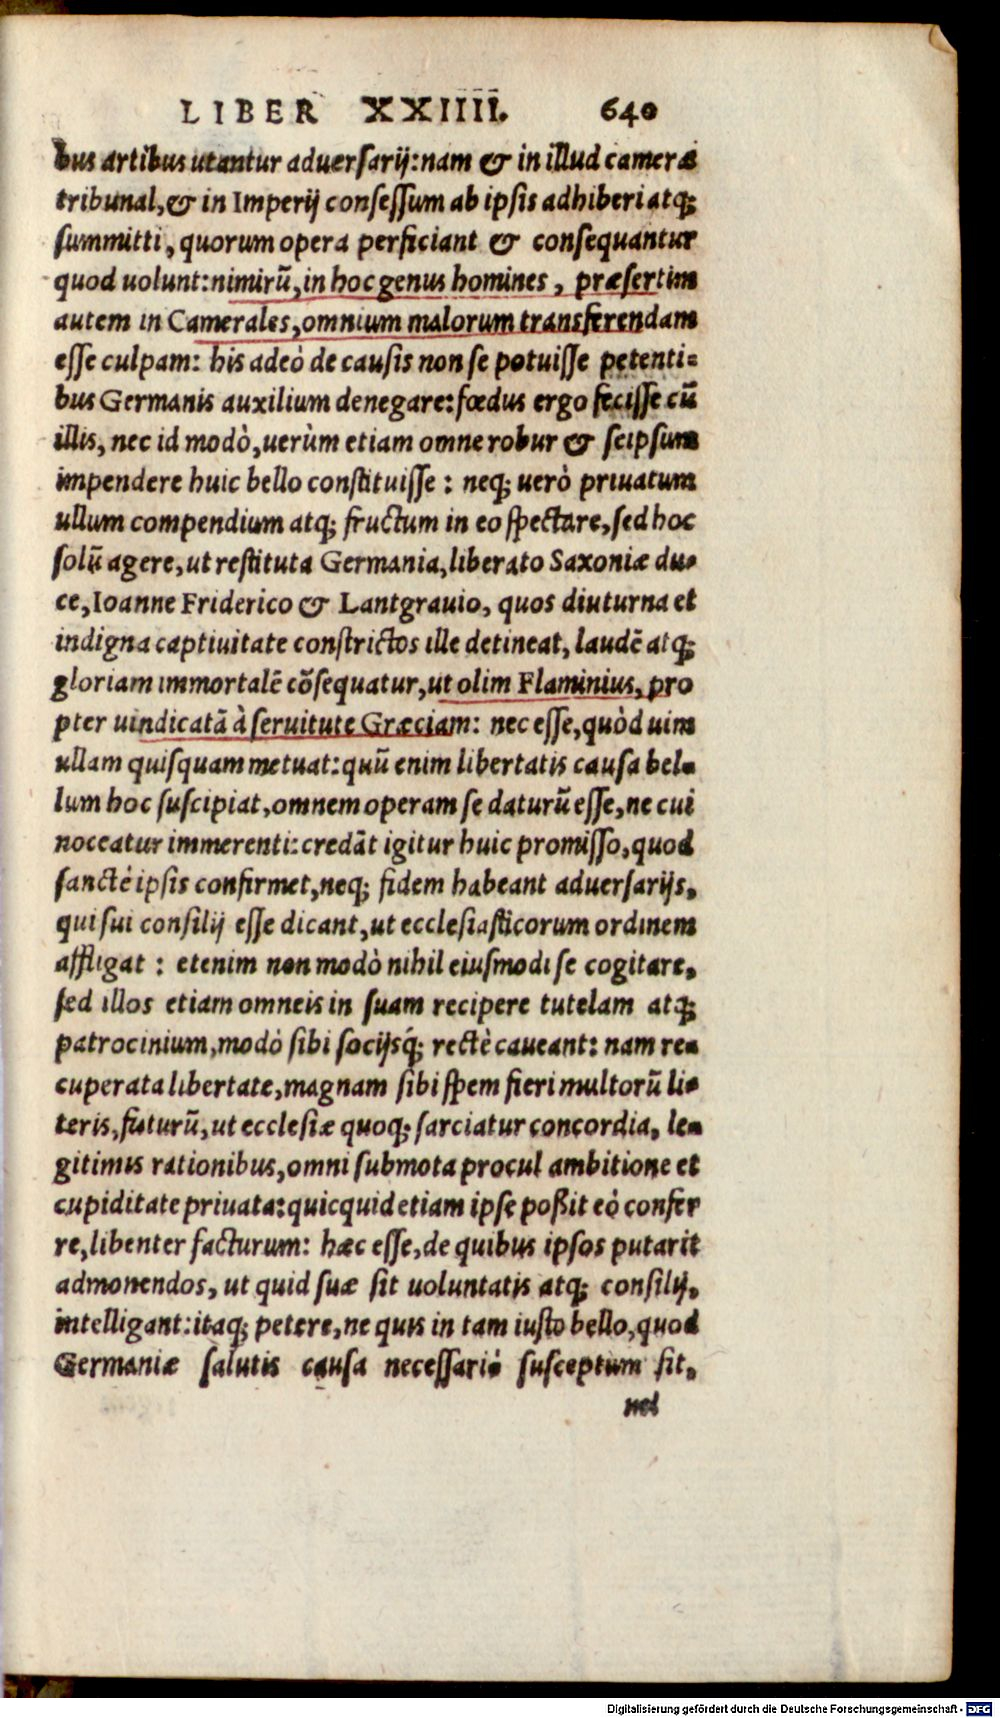 LIBER XXIIII. 640
bus artibus utantur aduersarij: nam & in illud cameræ
tribunal, & in Imperij consessum ab ipsis adhiberi atq;
summitti, quorum opera perficiant & consequantur
quod uolunt: nimirũ, in hoc genus homines, præsertim
autem in Camerales, omnium malorum transferendam
esse culpam: his adeò de causis non se potuisse petenti=
bus Germanis auxilium denegare: fœdus ergo fecisse cũ
illis, nec id modò, uerùm etiam omne robur & seipsum
impendere huic bello constituisse: neq; uerò priuatum
ullum compendium atq; fructum in eo spectare, sed hoc
solũ agere, ut restituta Germania, liberato Saxoniæ du-
ce, Ioanne Friderico & Lantgrauio, quos diuturna et
indigna captiuitate constrictos ille detineat, laudẽ atq;
gloriam immortalẽ cõsequatur, ut olim Flaminius, pro
pter uindicatã à seruitute Græciam: nec esse, quòd uim
ullam quisquam metuat: quũ enim libertatis causa bel-
lum hoc suscipiat, omnem operam se daturũ esse, ne cui
noceatur immerenti: credãt igitur huic promisso, quod
sanctè ipsis confirmet, neq; fidem habeant aduersarijs,
qui sui consilij esse dicant, ut ecclesiasticorum ordinem
affligat: etenim non modò nihil eiusmodi se cogitare,
sed illos etiam omneis in suam recipere tutelam atq;
patrocinium, modò sibi socijsq́; rectè caueant: nam re-
cuperata libertate, magnam sibi spem fieri multorũ li-
teris, futurũ, ut ecclesiæ quoq; sarciatur concordia, le-
gitimis rationibus, omni submota procul ambitione et
cupiditate priuata: quicquid etiam ipse poßit eò confer
re, libenter facturum: hæc esse, de quibus ipsos putarit
admonendos, ut quid suæ sit uoluntatis atq; consilij,
intelligant: itaq; petere, ne quis in tam iusto bello, quod
Germaniæ salutis causa necessariò susceptum sit,
uel
Digitalisierung gefördert durch die Deutsche Forschungsgemeinschaft - DFG